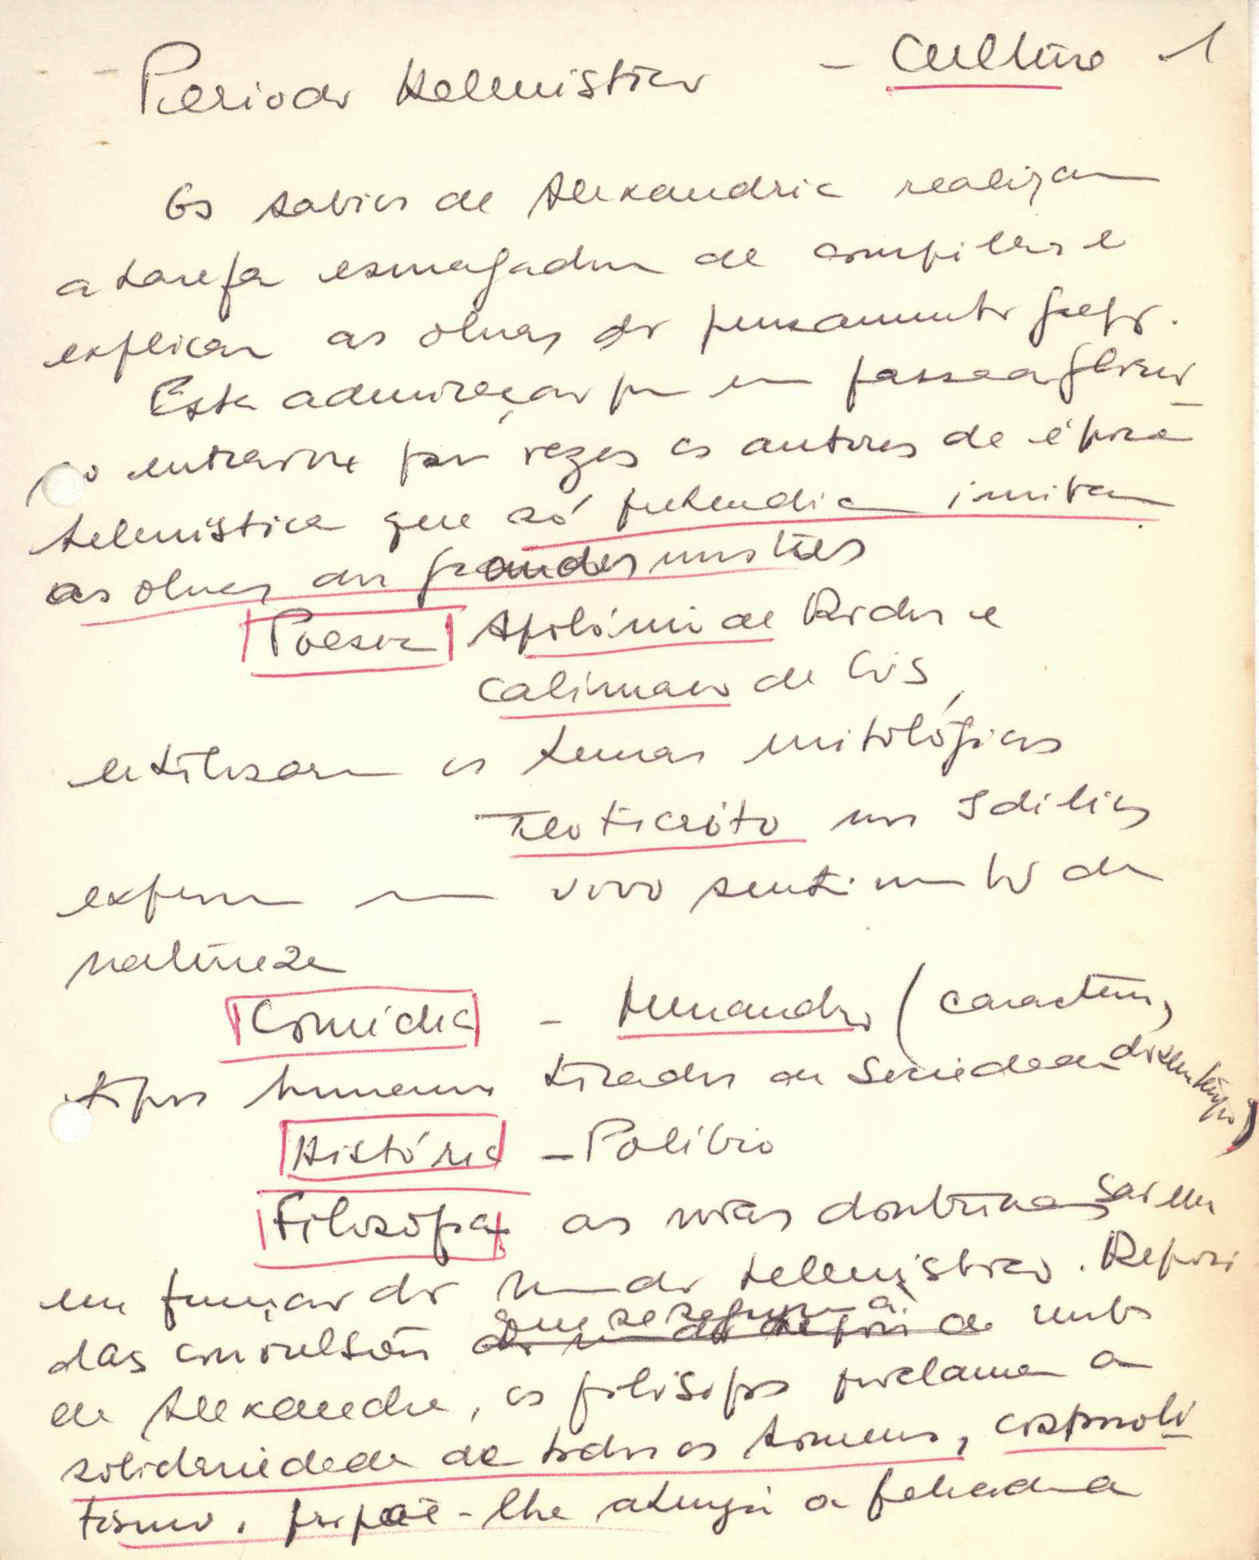 Periodo Helenistico - Cultura 1
Os sabios de Alexandria realizam
a tarefa esmagadora de compilar e
explicar as obras do pensamento grego.
Esta admiração por um passado glorio-
so entrava por vezes os autores da época
helenistica que só pretendiam imitar
as obras dos grandes mestres
Poesia Apolónio de Rodes e
Calimaco de Cós,
utilizaram os temas mitológicos
Teoticrito nos Idilios
exprime um vivo sentimento da
natureza
Comédia - Menandro (caracteres,
tipos humanos tirados da Sociedade do seu tempo)
História - Polibio
Filosofia as novas doutrinas saem
em função do mundo helenistico. Depois
das convulsões que se seguiram à morte
de Alexandre, os filósofos proclamam a
solidariedade de todos os homens, cosmopoli
tismo. propõe-lhe atingir a felicidade